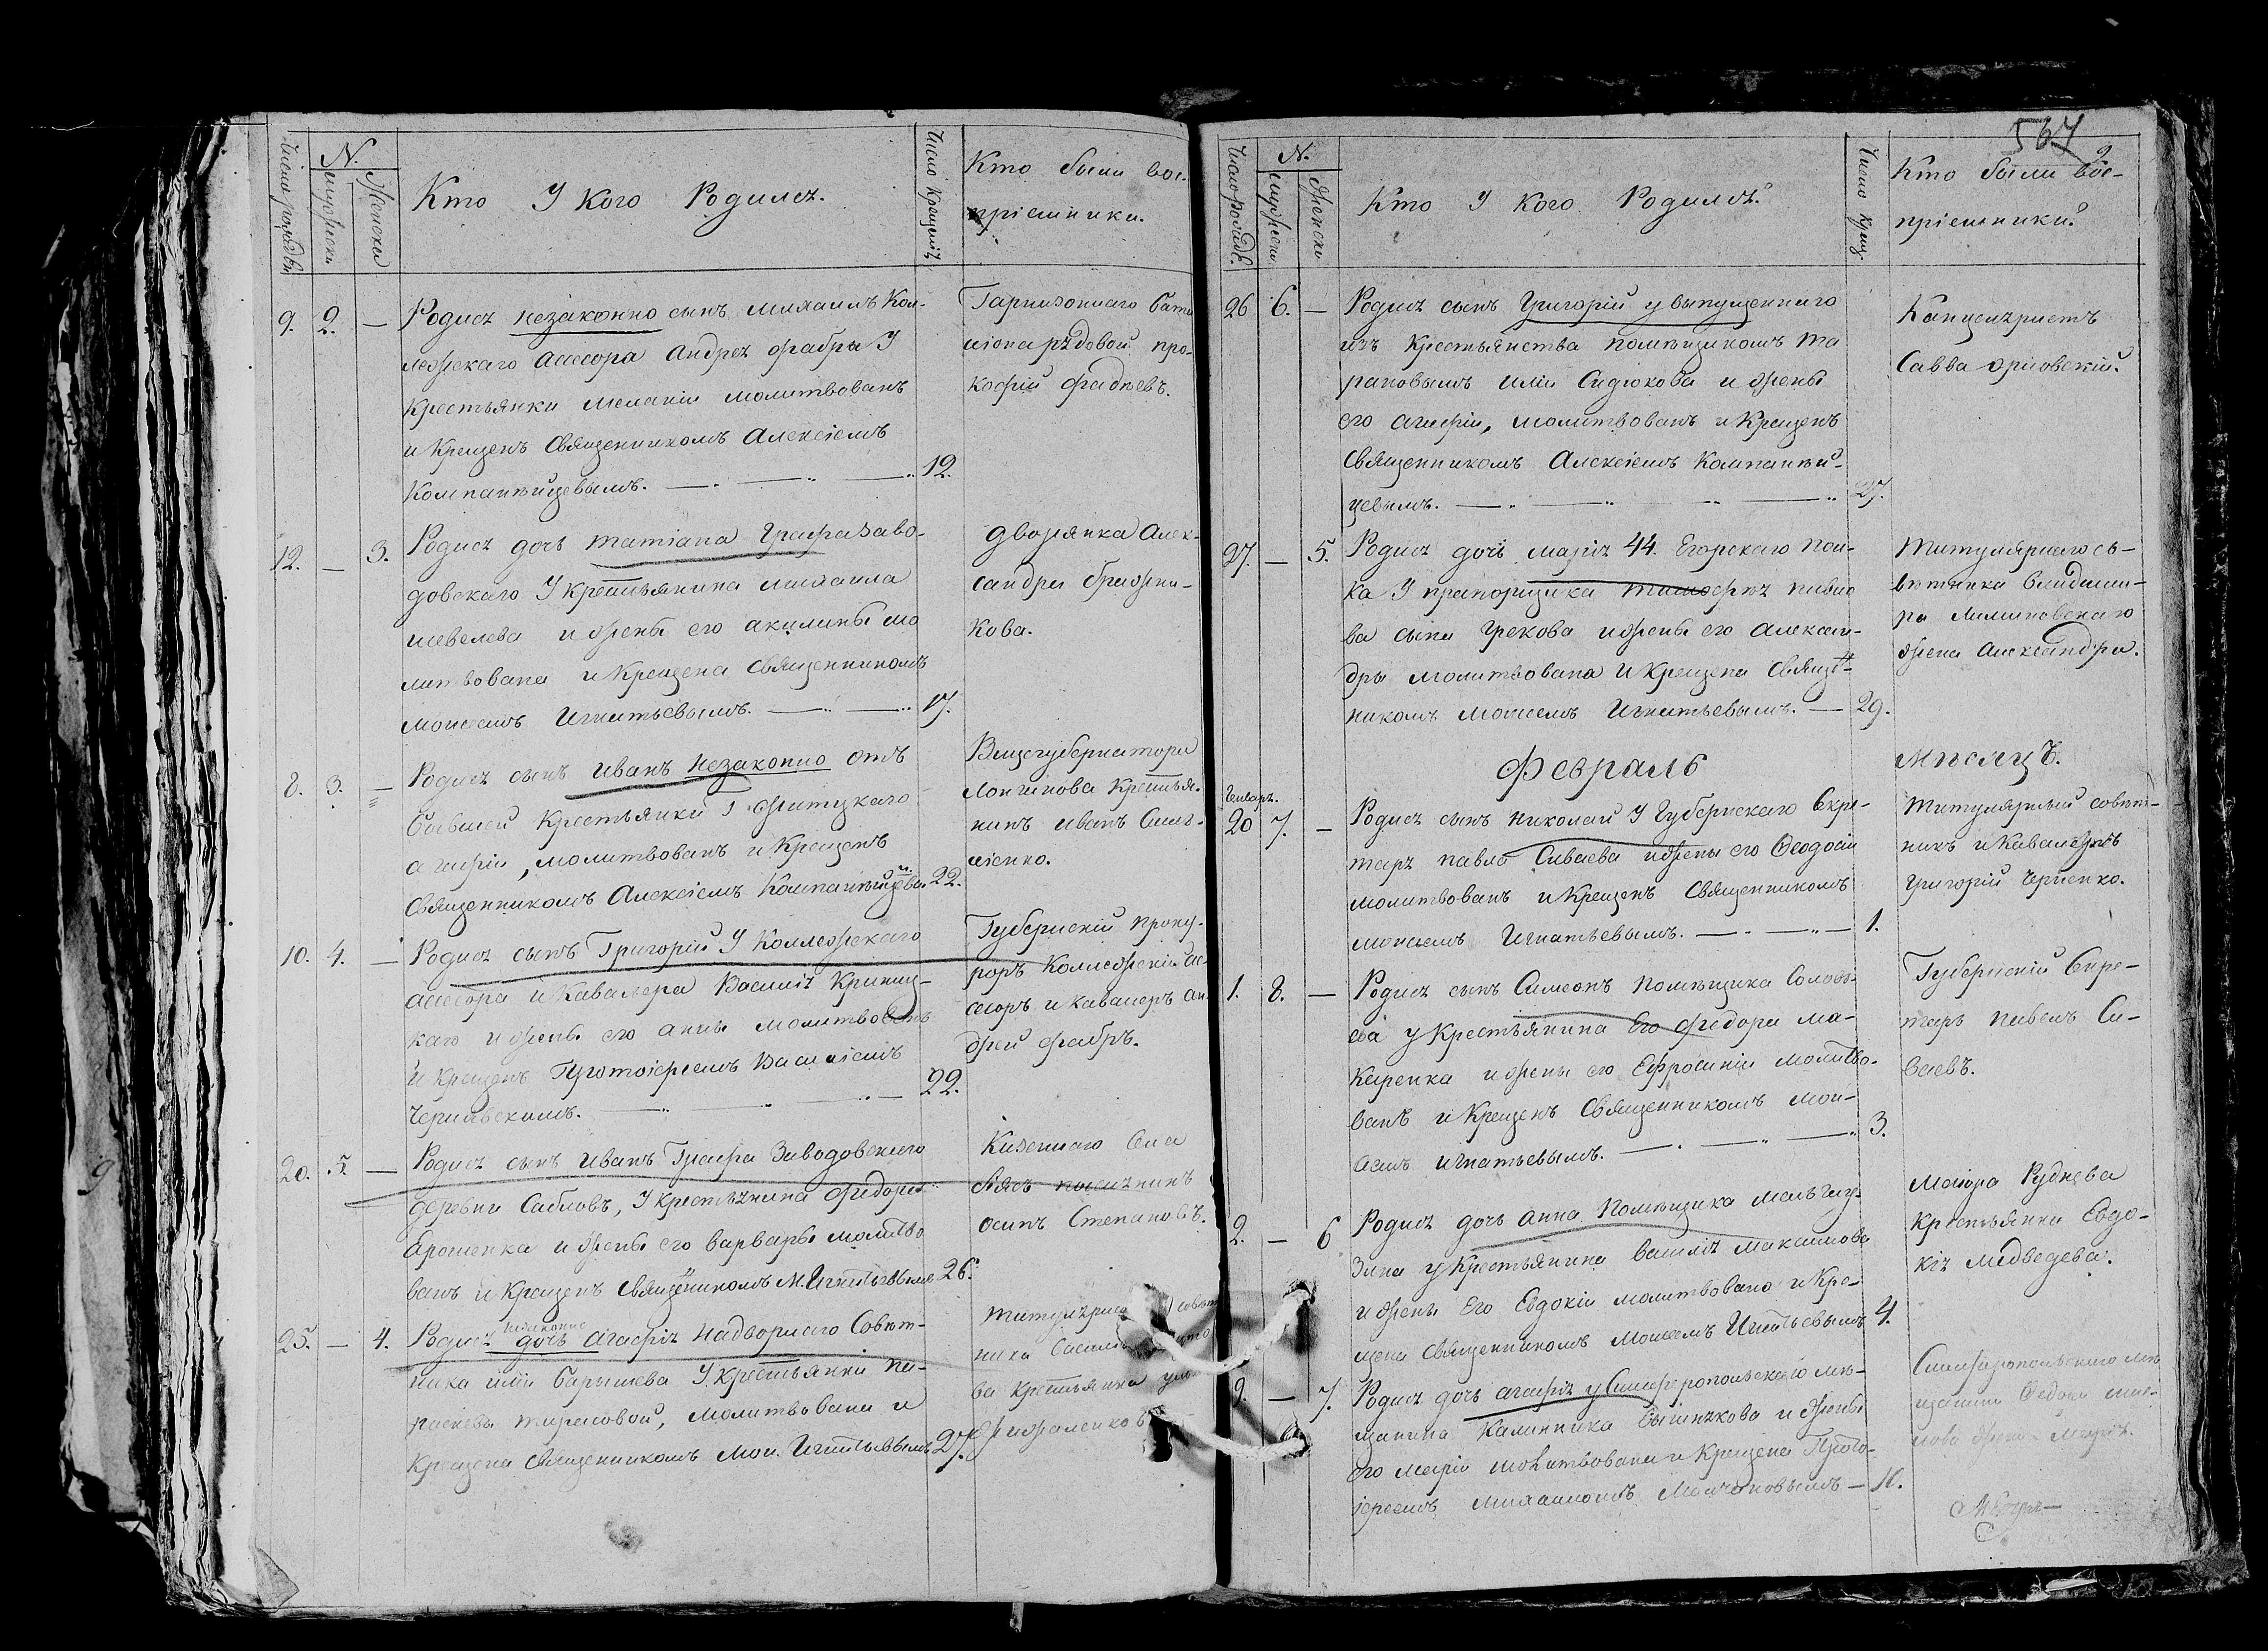 Число рождѣн
N.
мужеск
Женска
Кто У Кого Родился.
Число Крещенія
Кто были вос-
пріемники.
9. 2. —
Родися незаконно сынъ михаилъ Кол-
лежскаго Ассесора Андрея фабры У
Крестьянки меланіи молитвованъ
и Крещенъ Священникомъ Алексіемъ
Компанѣйцевымъ. 12.
Гарнизоннаго бата
ліона рядовой про-
кофій фадѣевъ.
12. — 3.
Родися дочь татіана Графа Заво-
довскаго У крестьянина михаила
шевелева и жены его акилины мо
литвована и Крещена Священникомъ
моисеемъ Игнатьевымъ. 17.
дворянка Алек-
сандра бражни-
кова.
8. 3. —
Родися сынъ иванъ незаконно отъ
бывшей Крестьянки
агафіи, молитвованъ и Крещенъ
Священникомъ Алексіемъ Компанѣйцевы 22.
Вицегубернатора
Лонгинова Крестья-
нинъ иванъ
10. 4. —
Родися сынъ Григорій У Коллежскаго
ассесора и Кавалера Василія Криниц-
каго и жены его анны молитвованъ
и Крещенъ Протоіереемъ Василіемъ
Чернявскимъ. 22.
Губернскій проку-
роръ Коллежскій ас-
сесоръ и кавалеръ ан-
дрей фабръ.
20. 5. —
Родися сынъ иванъ Графа Заводовскаго
деревни Сабловъ, У крестьянина Федора
Ярошенка и жены его варвары молитво
ванъ и Крещенъ Священникомъ М. Игнатьевымъ 26.
Казеннаго Села
осипъ Степановъ.
25. — 4.
незаконно
Родися дочь агафія Надворнаго Совѣт-
ника Барышева У Крестьянки па-
раскевы тарасовой, молитвована и
Крещена Священникомъ Мои. Игнатьевымъ 27.
ника Василія
ва крестьянка
567
2
Число рождѣ.
N.
мужеск
Женски
Кто У Кого Родился
Число Крещ.
Кто были вос-
пріемники
26 6. —
Родися сынъ Григорій у выпущеннаго
изъ Крестьянства помѣщикомъ та
рановымъ Сидюкова и жены
его агафіи, молитвованъ и Крещенъ
Священникомъ Алексіемъ Компанѣй-
цевымъ. 27.
Канцеляристъ
Савва орловскій.
27. — 5.
Родися дочь марія 44. Егерскаго пол-
ка У прапорщика тимофея павло
ва сына Грекова и жены его Алексан-
дры молитвована и Крещена Священ-
никомъ моисеемъ Игнатьевымъ. 29.
Титулярнаго со-
вѣтника владими-
ра
жена Александра.
Февраль мѣсяцъ.
Генварь.
20 7. —
Родися сынъ николай У Губернскаго Секре-
таря павла Сиваева и жены его Ѳеодосіи
молитвованъ и Крещенъ Священникомъ
моисеемъ Игнатьевымъ. 1.
Титулярный совѣт-
никъ и Кавалеръ
Григорій Черненко.
1. 8. —
Родися сынъ Симеонъ помѣщика Соловь-
ева у Крестьянина Его Федора Ма-
каренка и жены его Ефросиніи молитво-
ванъ и Крещенъ Священникомъ Мои-
сеемъ Игнатьевымъ. 3.
Губернскій Секре-
тарь Павелъ Си-
ваевъ.
2. — 6
Родися дочь анна помѣщика мальгу-
зина у Крестьянина василія максимова
и жены Его Евдокіи молитвована и Кре-
щена Священникомъ Моисеемъ Игнатьевымъ 4.
Маіора Руднева
Крестьянка Евдо-
кія Медведева.
9. — 7.
Родися дочь агафія у Симферопольскаго мѣ-
щанина Калинника и жены
его маріи молитвована и Крещена Прото-
іереемъ Михаиломъ Молчановымъ — 11.
Симферопольскаго мѣ
щанина Федора
жена Марія.